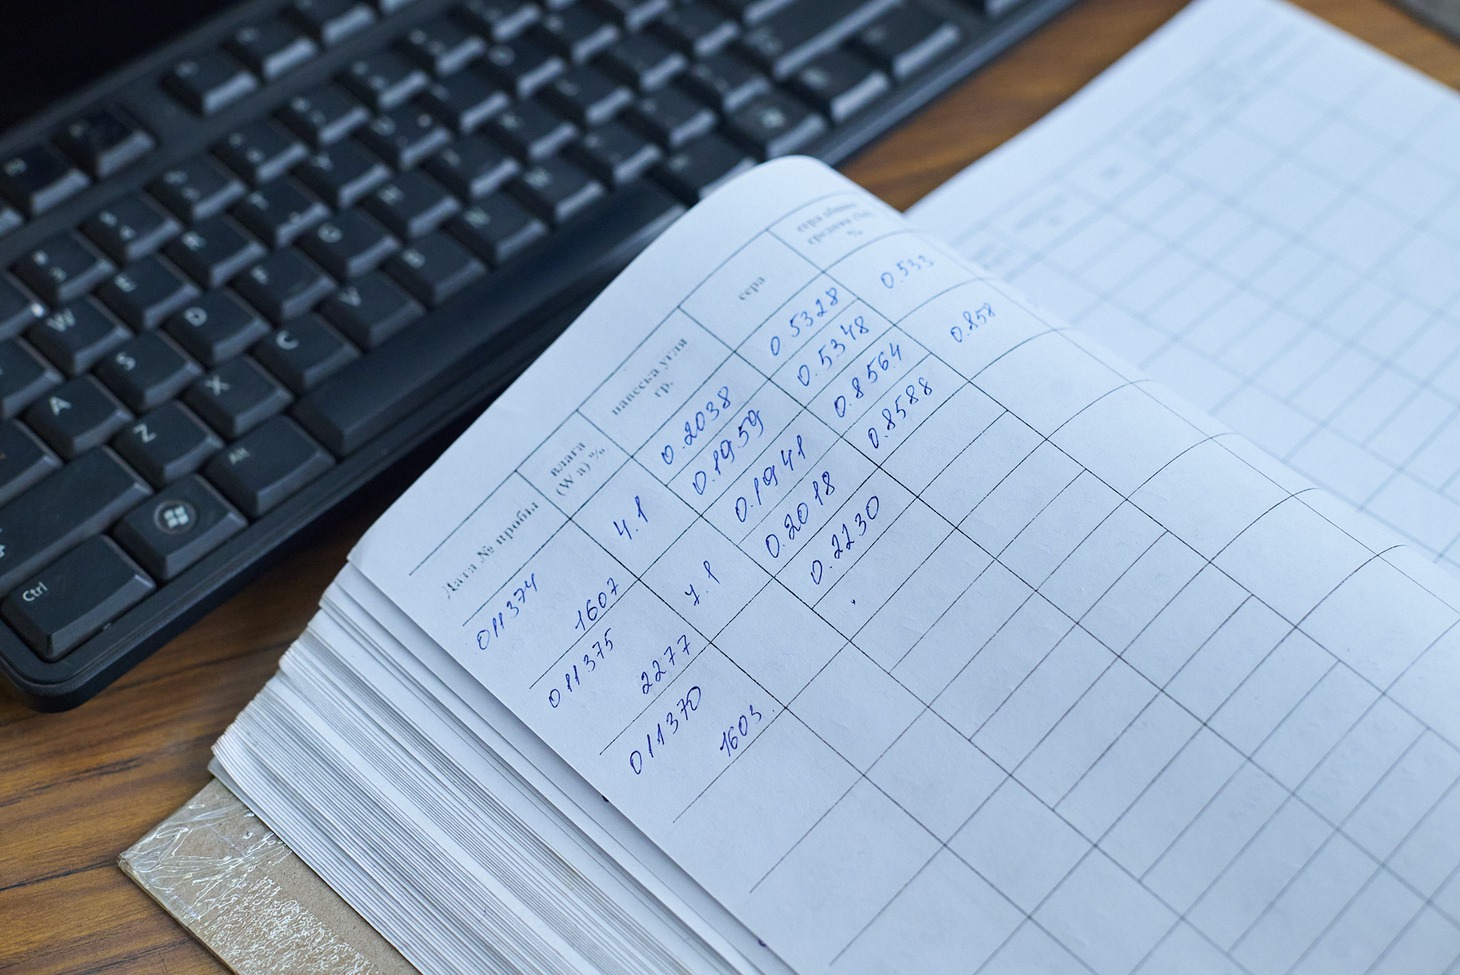 Дата № пробы
влага
(W a) %
навеска угля
гр.
сера
сера общая
%
011374
1607
4.1
0.2038
0.5328
0.533
0.1959
0.5348
011375
2277
7.1
0.1941
0.8564
0.858
0.2018
0.8588
011370
1603
0.2230
W
E
R
A
S
D
F
G
H
Z
X
C
V
B
N
Alt
Ctrl